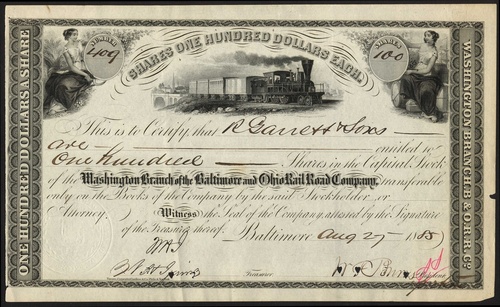 SHARES ONE HUNDRED DOLLARS EACH.
NUMBER
409
SHARES
100
ONE HUNDRED DOLLARS A SHARE
WASHINGTON BRANCH B. & O. R.R. Co.
This is to Certify, that R Garrett & Sons
are entitled to
One Hundred Shares in the Capital Stock
of the Washington Branch of the Baltimore and Ohio Rail Road Company, transferable
only on the Books of the Company by the said Stockholder or
Attorney.
Witness the Seal of the Company, attested by the Signature
of the Treasurer thereof.
Baltimore Aug 27 1885
Treasurer